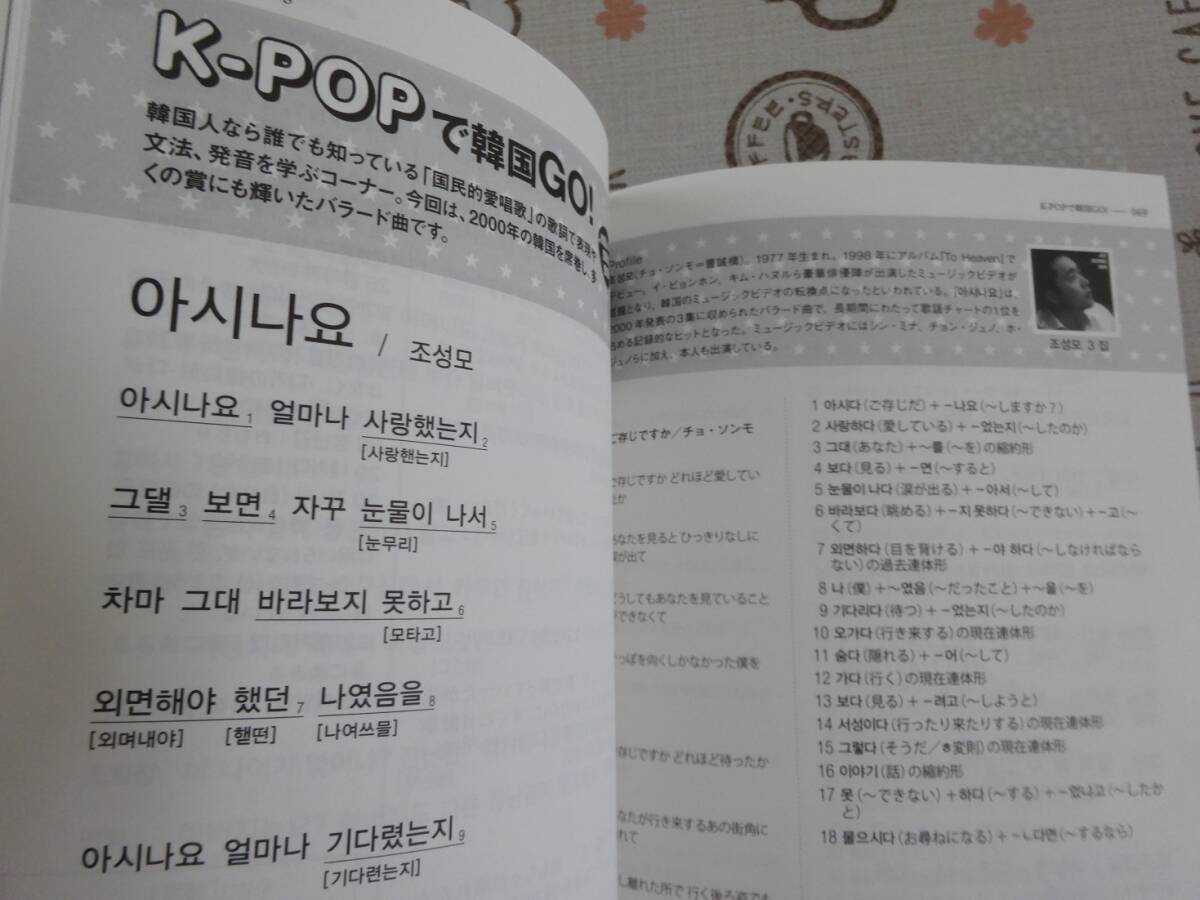 K-POPで韓国GO!
韓国人なら誰でも知っている「国民的愛唱歌」の歌詞で表現や
文法、発音を学ぶコーナー。今回は、2000年の韓国を席巻し、多
くの賞にも輝いたバラード曲です。
아시나요 / 조성모
아시나요1 얼마나 사랑했는지2
[사랑핸는지]
그댈3 보면4 자꾸 눈물이 나서5
[눈무리]
차마 그대 바라보지 못하고6
[모타고]
외면해야 했던7 나였음을8
[외며내야] [핻떤] [나여쓰믈]
아시나요 얼마나 기다렸는지9
[기다련는지]
K-POPで韓国GO! 069
Profile
(チョ・ソンモ=曺誠模)。1977年生まれ。1998年にアルバム『To Heaven』で
デビュー。イ・ビョンホン、キム・ハヌルら豪華俳優陣が出演したミュージックビデオが
話題となり、韓国のミュージックビデオの転換点になったといわれている。「아시나요」は、
2000年発表の3集に収められたバラード曲で、長期間にわたって歌謡チャートの1位を
占める記録的なヒットとなった。ミュージックビデオにはシン・ミナ、チョン・ジュノ、ホ・
ジュノらに加え、本人も出演している。
조성모 3집
ご存じですか/チョ・ソンモ
ご存じですか どれほど愛してい
たか
あなたを見ると ひっきりなしに
涙が出て
どうしてもあなたを見ていること
ができなくて
そっぽを向くしかなかった僕を
ご存じですか どれほど待ったか
あなたが行き来するあの街角に
れて
し離れた所で 行く後ろ姿でも
1 아시다(ご存じだ)+-나요(~しますか?)
2 사랑하다(愛している)+-었는지(~したのか)
3 그대(あなた)+~를(~を)の縮約形
4 보다(見る)+-면(~すると)
5 눈물이 나다(涙が出る)+-아서(~して)
6 바라보다(眺める)+-지 못하다(~できない)+-고(~
くて)
7 외면하다(目を背ける)+-야 하다(~しなければなら
ない)の過去連体形
8 나(僕)+~였음(~だったこと)+~을(~を)
9 기다리다(待つ)+-었는지(~したのか)
10 오가다(行き来する)の現在連体形
11 숨다(隠れる)+-어(~して)
12 가다(行く)の現在連体形
13 보다(見る)+-려고(~しようと)
14 서성이다(行ったり来たりする)の現在連体形
15 그렇다(そうだ/ㅎ変則)の現在連体形
16 이야기(話)の縮約形
17 못(~できない)+하다(~する)+-었냐고(~したか
と)
18 물으시다(お尋ねになる)+-ㄴ다면(~するなら)